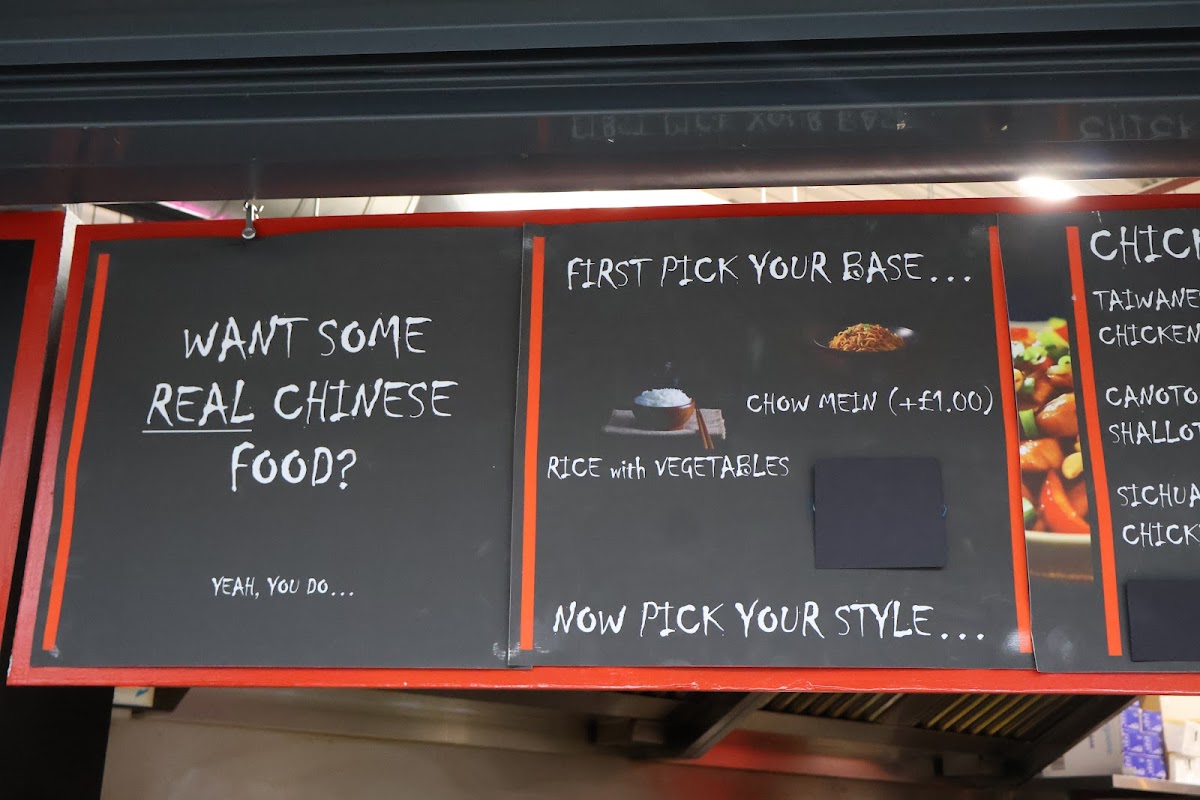 WANT SOME
REAL CHINESE
FOOD?
YEAH, YOU DO...
FIRST PICK YOUR BASE...
CHOW MEIN (+£1.00)
RICE with VEGETABLES
NOW PICK YOUR STYLE...
CHICK
TAIWANES
CHICKEN
CANOTO
SHALLOT
SICHUA
CHICK